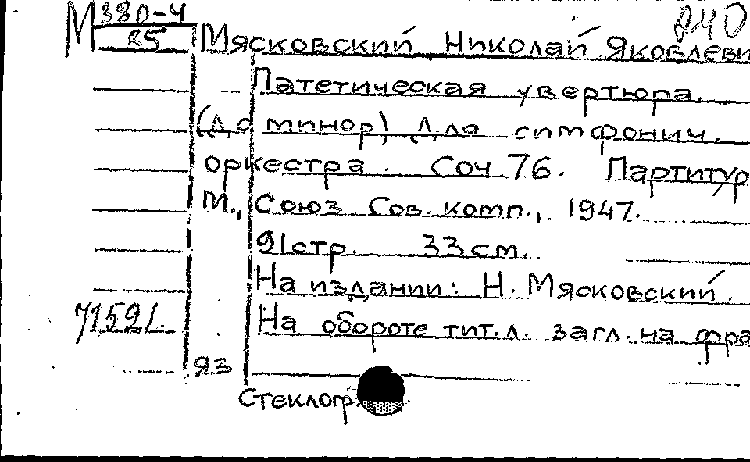 М 380-4
85
840
Мясковский Николай Яковлеви
Патетическая увертюра.
(до минор) Для симфонич.
оркестра. Соч. 76. Партитур
М., Союз Сов. комп., 1947.
91 стр. 33 см.
На издании: Н. Мясковский.
71591
На обороте тит. л. загл. на фра
яз
Стеклогр.